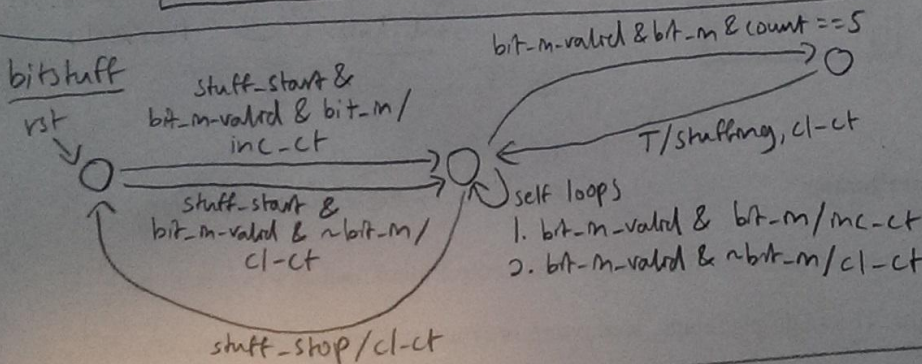 bitstuff
rst
stuff_start &
bit_in_valid & bit_in/
inc_ct
stuff_start &
bit_in_valid & ~bit_in/
cl_ct
stuff_stop/cl-ct
bit_in_valid & bit_in & count ==5
T/stuffing, cl-ct
self loops
1. bit_in_valid & bit_in/inc_ct
2. bit_in_valid & ~bit_in/cl-ct